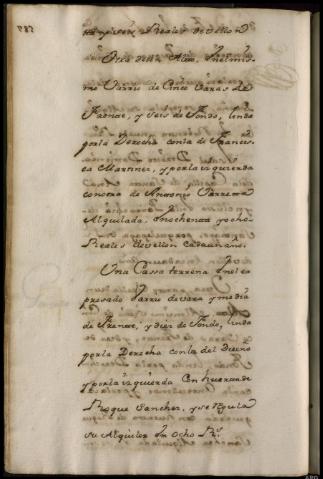 Reales de vellon
Otra dha. Alta, en el mis
mo Varrio de Cinco Varas de
Frente, y Seis de fondo, linda
por la Derecha con la de Francis
ca Martinez, y por la izquierda
con otra de Antonio
Alquilada, En ochenta y ocho
Reales de vellon cada un año.
Una Cassa terrena En el ex
presado Varrio de vara y media
de Frente, y diez de fondo, linda
por la Derecha con la del Dicho
y por la izquierda Con huerva de
Roque Sanchez, y se regula
su Alquiler En ocho Rs.